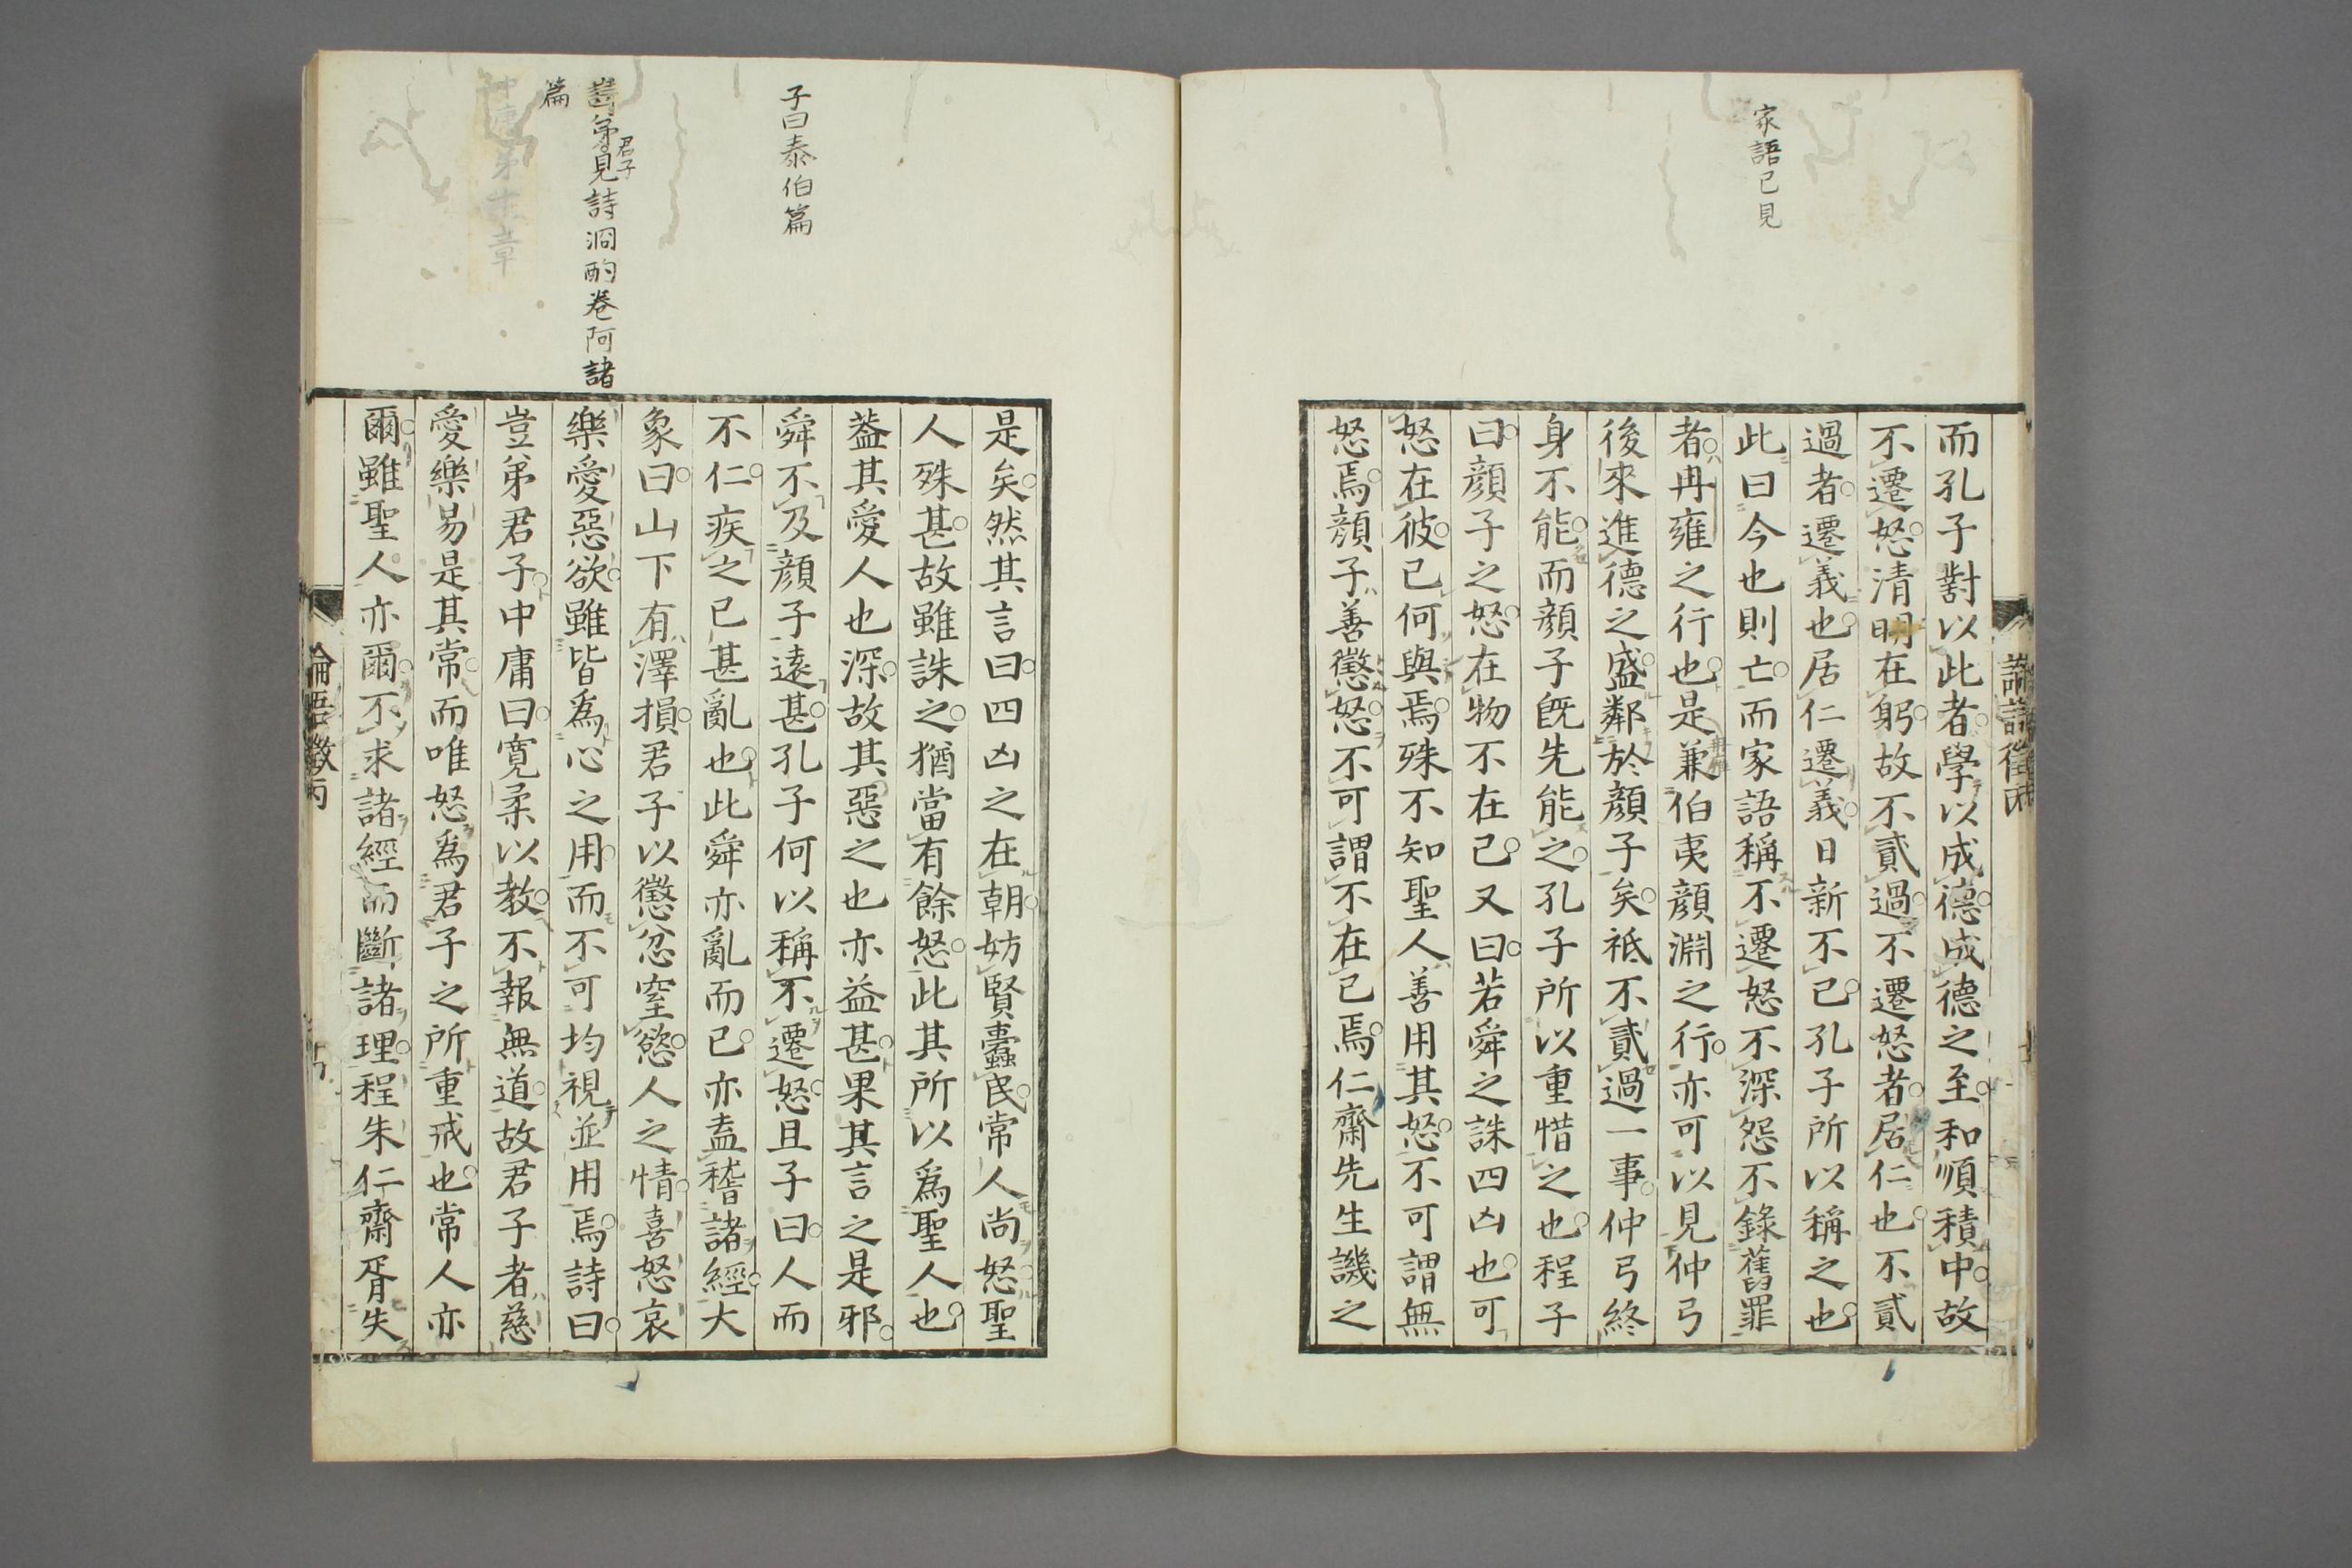 家語已見
而孔子對以此者學以成德成德之至和順積中故
不遷怒清明在躬故不貳過不遷怒者居仁也不貳
過者遷義也居仁遷義日新不已孔子所以稱之也
此曰今也則亡而家語稱不遷怒不深怨不錄舊罪
者冉雍之行也是兼伯夷顏淵之行亦可以見仲弓
後來進德之盛鄰於顏子矣祗不貳過一事仲弓終
身不能而顏子既先能之孔子所以重惜之也程子
曰顏子之怒在物不在己又曰若舜之誅四凶也可
怒在彼已何與焉殊不知聖人善用其怒不可謂無
怒焉顏子善懲怒不可謂不在已焉仁齋先生譏之
子曰泰伯篇
豈弟君子見詩泂酌卷阿諸
篇
中庸第十章
是矣然其言曰四凶之在朝妨賢蠹民常人尚怒聖
人殊甚故雖誅之猶當有餘怒此其所以爲聖人也
葢其愛人也深故其惡之也亦益甚果其言之是邪
舜不及顏子遠甚孔子何以稱不遷怒且子曰人而
不仁疾之已甚亂也此舜亦亂而已亦盍稽諸經大
象曰山下有澤損君子以懲忿窒慾人之情喜怒哀
樂愛惡欲雖皆爲心之用而不可均視並用焉詩曰
豈弟君子中庸曰寬柔以教不報無道故君子者慈
愛樂易是其常而唯怒爲君子之所重戒也常人亦
爾雖聖人亦爾不求諸經而斷諸理程朱仁齋胥失
論語徵丙